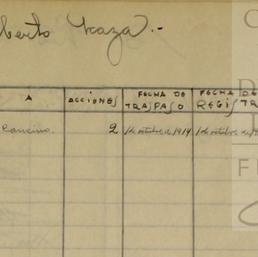 berto Icaza.-
A ACCIONES FECHA DE TRASPASO FECHA DE REGISTR
Cancino 2 1 de octubre de 1914 1 de octubre de